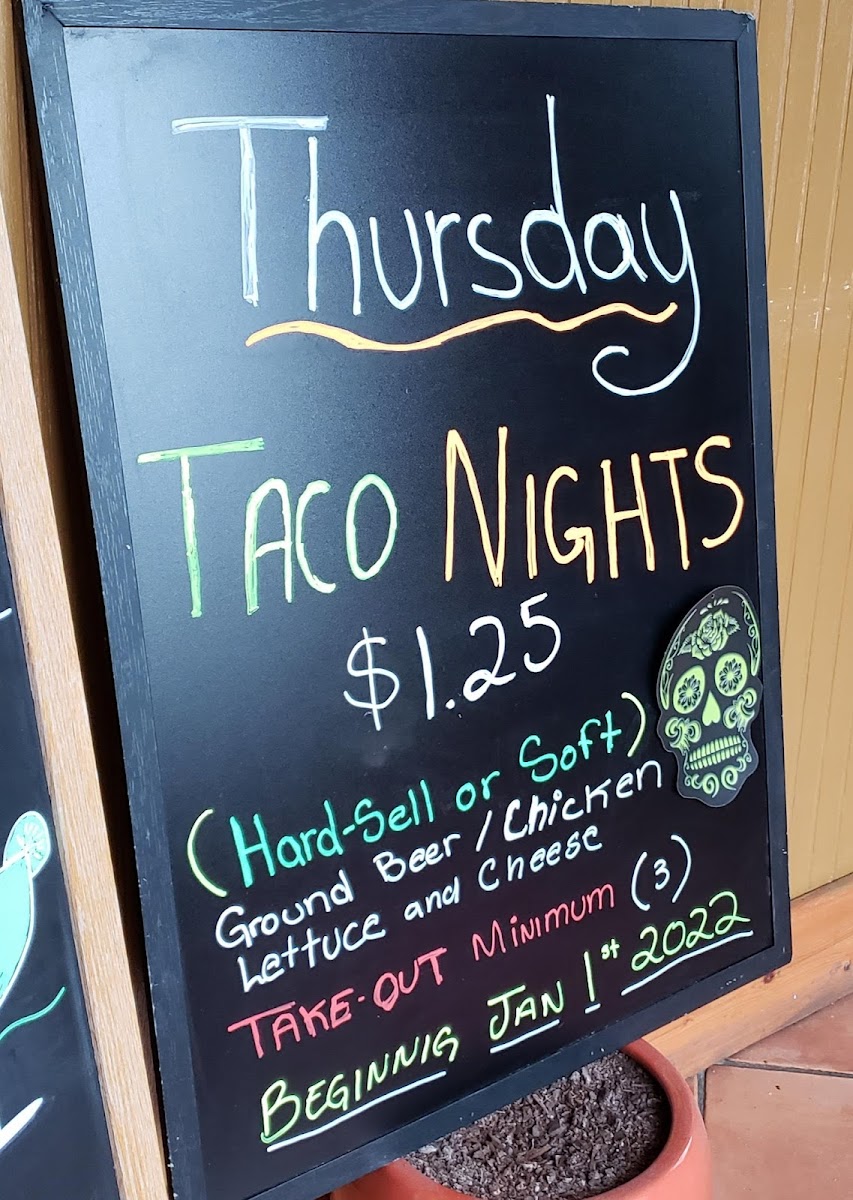 Thursday
TACO NIGHTS
$1.25
(Hard-Sell or Soft)
Ground Beer / Chicken
Lettuce and Cheese
TAKE-OUT MINIMUM (3)
BEGINNIG JAN 1st 2022